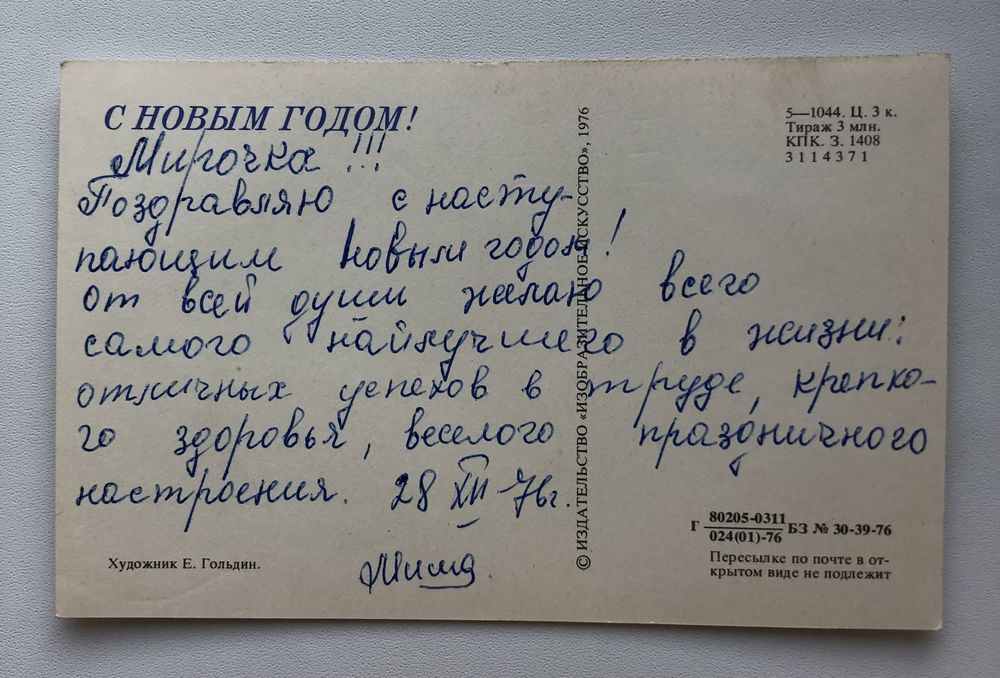 С НОВЫМ ГОДОМ!
Мирочка!!!
Поздравляю с насту-
пающим Новым годом!
От всей души желаю всего
самого найлучшего в жизни:
отличных успехов в труде, крепко-
го здоровья, веселого праздничного
настроения. 28 XII-76г.
Художник Е. Гольдин.
© ИЗДАТЕЛЬСТВО «ИЗОБРАЗИТЕЛЬНОЕ ИСКУССТВО», 1976
5—1044. Ц. 3 к.
Тираж 3 млн.
КПК. З. 1408
3114371
Г 80205-0311 БЗ № 30-39-76
024(01)-76
Пересылке по почте в от-
крытом виде не подлежит